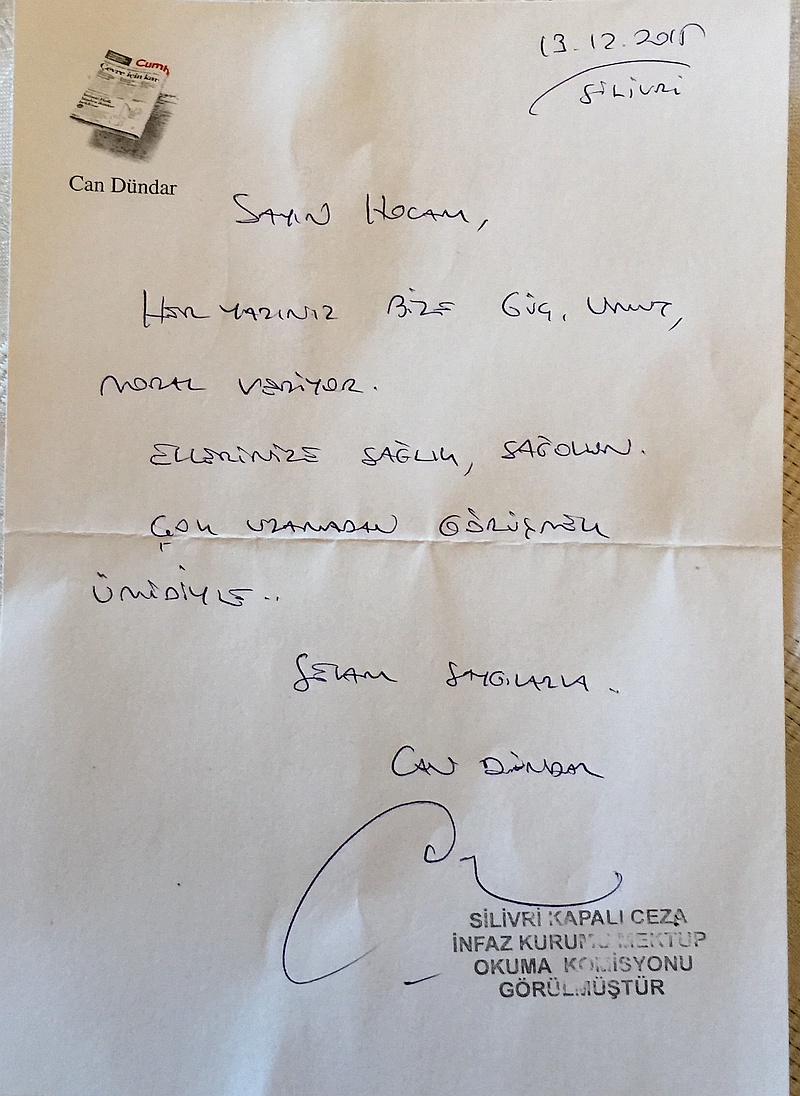 13.12.2015
SİLİVRİ
Cumh
Çevre için kar
Can Dündar
SAYIN HOCAM,
HER YAZINIZ BİZE GÜÇ, UMUT,
MORAL VERİYOR.
ELLERİNİZE SAĞLIK, SAĞOLUN.
ÇOK UZAMADAN GÖRÜŞMEK
ÜMİDİYLE..
SELAM SAYGILARLA..
CAN DÜNDAR
SİLİVRİ KAPALI CEZA
İNFAZ KURUMU MEKTUP
OKUMA KOMİSYONU
GÖRÜLMÜŞTÜR